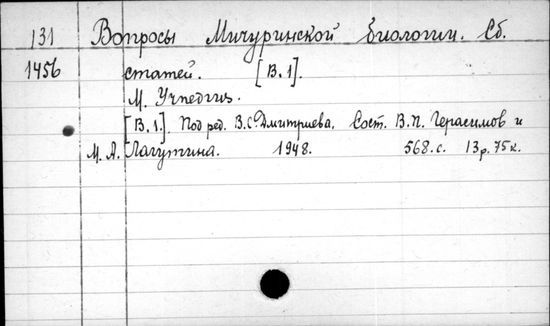 131 Вопросы Мичуринской биологии. Сб.
1456 статей. [В.1].
М. Учпедгиз.
[В.1]. Под ред. В.С Дмитриева. Сост. В.П. Герасимов и
М.А. Лагутина. 1948. 568.с. 13р.75к.